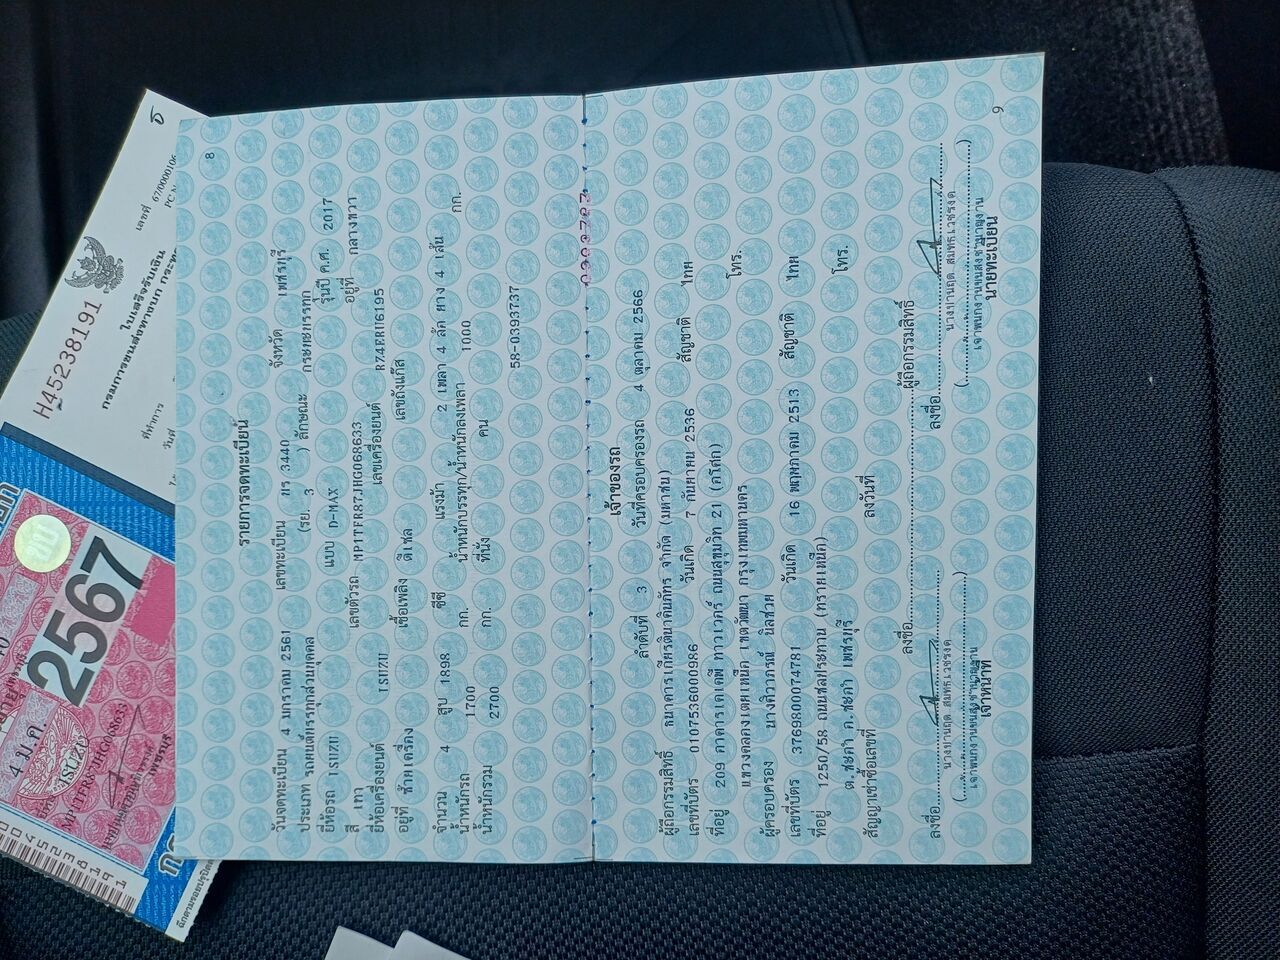 8
รายการจดทะเบียน
วันจดทะเบียน 4 มกราคม 2561 เลขทะเบียน บร 3440 จังหวัด เพชรบุรี
ประเภท รถยนต์บรรทุกส่วนบุคคล (รย. 3 ) ลักษณะ กระบะบรรทุก
ยี่ห้อรถ ISUZU แบบ D-MAX รุ่นปี ค.ศ. 2017
สี เทา เลขตัวรถ MP1TFR87JHG068633 อยู่ที่ กลางขวา
ยี่ห้อเครื่องยนต์ ISUZU เลขเครื่องยนต์ RZ4ERU6195
อยู่ที่ ซ้ายเครื่อง เชื้อเพลิง ดีเซล เลขถังแก๊ส
จำนวน 4 สูบ 1898 ซีซี แรงม้า 2 เพลา 4 ล้อ ยาง 4 เส้น
น้ำหนักรถ 1700 กก. น้ำหนักบรรทุก/น้ำหนักลงเพลา 1000 กก.
น้ำหนักรวม 2700 กก. ที่นั่ง คน
58-0393737
เจ้าของรถ
ลำดับที่ 3 วันที่ครอบครองรถ 4 ตุลาคม 2566
ผู้ถือกรรมสิทธิ์ ธนาคารเกียรตินาคินภัทร จำกัด (มหาชน)
เลขที่บัตร 0107536000986 วันเกิด 7 กันยายน 2536 สัญชาติ ไทย
ที่อยู่ 209 อาคารเคเคพี ทาวเวอร์ ถนนสุขุมวิท 21 (อโศก)
แขวงคลองเตยเหนือ เขตวัฒนา กรุงเทพมหานคร โทร.
ผู้ครอบครอง นางทิวาภรณ์ นิลช่วย
เลขที่บัตร 3769800074781 วันเกิด 16 พฤษภาคม 2513 สัญชาติ ไทย
ที่อยู่ 1250/58 ถนนชลประทาน (ทรายเหนือ)
ต.ชะอำ อ.ชะอำ เพชรบุรี โทร.
สัญญาเช่าซื้อเลขที่ ลงวันที่
ลงชื่อ ผู้ถือกรรมสิทธิ์
ลงชื่อ ลงชื่อ
เจ้าหน้าที่ นายทะเบียน
9
H45238191
กรมการขนส่งทางบก
ใบเสร็จรับเงิน
เลขที่ 67/0000106
ที่ทำการ
วันที่
2567
4 ม.ค.
ISUZU
MP1TFR87JHG068633
เพชรบุรี